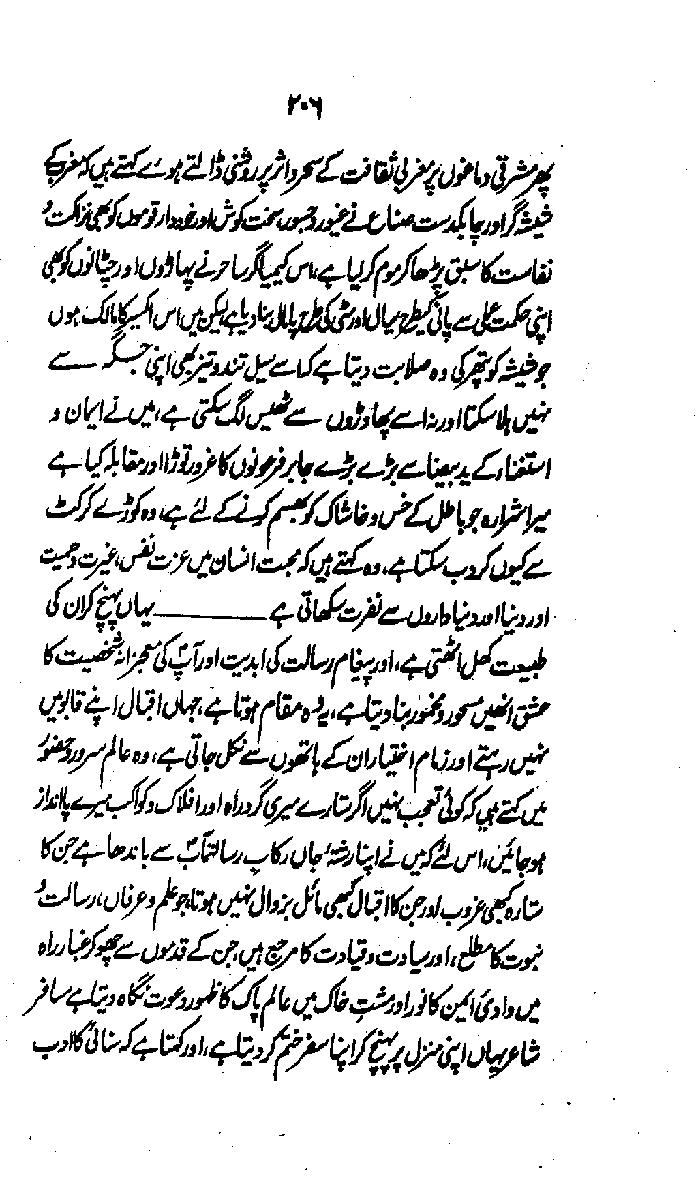 ۲۰۶
پھر مشرقی دماغوں پر مغربی ثقافت کے سحر و اثر پر روشنی ڈالتے ہوئے کہتے ہیں کہ مغرب کے
شیشہ گر اور چابکدست صناع نے غیور و جسور، سخت کوش اور خوددار قوموں کو بھی نزاکت و
نفاست کا سبق پڑھا کر موم کر لیا ہے، اس کیمیاگر ساحر نے پہاڑوں اور چٹانوں کو بھی
اپنی حکمت عملی سے پانی کیطرح سیال اور مٹی کی طرح پامال بنا دیا ہے لیکن میں اس اکسیر کا مالک ہوں
جو شیشہ کو پتھر کی وہ صلابت دیتا ہے کہ اسے سیل تند و تیز بھی اپنی جگہ سے
نہیں ہلا سکتا اور نہ اسے پھاوڑوں سے ٹھیس لگ سکتی ہے، میں نے ایمان و
استغناء کے ید بیضا سے بڑے بڑے جابر فرعونوں کا غرور توڑا اور مقابلہ کیا ہے
میرا شرارہ جو باطل کے خس و خاشاک کو بھسم کرنے کے لئے ہے، وہ کوڑے کرکٹ
سے کیوں کر دب سکتا ہے، وہ کہتے ہیں کہ محبت انسان میں عزت نفس، غیرت و حمیت
اور دنیا اور دنیا داروں سے نفرت سکھاتی ہے ــــــــــ یہاں پہنچ کر ان کی
طبیعت کھل اٹھتی ہے، اور پیغام رسالت کی ابدیت اور آپؐ کی معجزانہ شخصیت کا
عشق انھیں مسحور و مخمور بنا دیتا ہے، یہ وہ مقام ہوتا ہے، جہاں اقبال اپنے قابو میں
نہیں رہتے اور زمام اختیار ان کے ہاتھوں سے نکل جاتی ہے، وہ عالم سرور و حضور
میں کہتے ہیں کہ کوئی تعجب نہیں اگر ستارے میری گرد راہ اور افلاک و کواکب میرے پا انداز
ہو جائیں، اس لئے کہ میں نے اپنا رشتۂ جاں رکاب رسالتمآبؐ سے باندھا ہے جن کا
ستارہ کبھی غروب اور جن کا اقبال کبھی مائل بزوال نہیں ہوتا، جو علم و عرفاں، رسالت و
نبوت کا مطلع، اور سیادت و قیادت کا مرجع ہیں، جن کے قدموں سے چھو کر غبار راہ
میں وادئ ایمن کا نور اور مشت خاک میں عالم پاک کا ظہور دعوت نگاہ دیتا ہے مسافر
شاعر یہاں اپنی منزل پر پہنچ کر اپنا سفر ختم کر دیتا ہے، اور کہتا ہے کہ سنائیؒ کا ادب